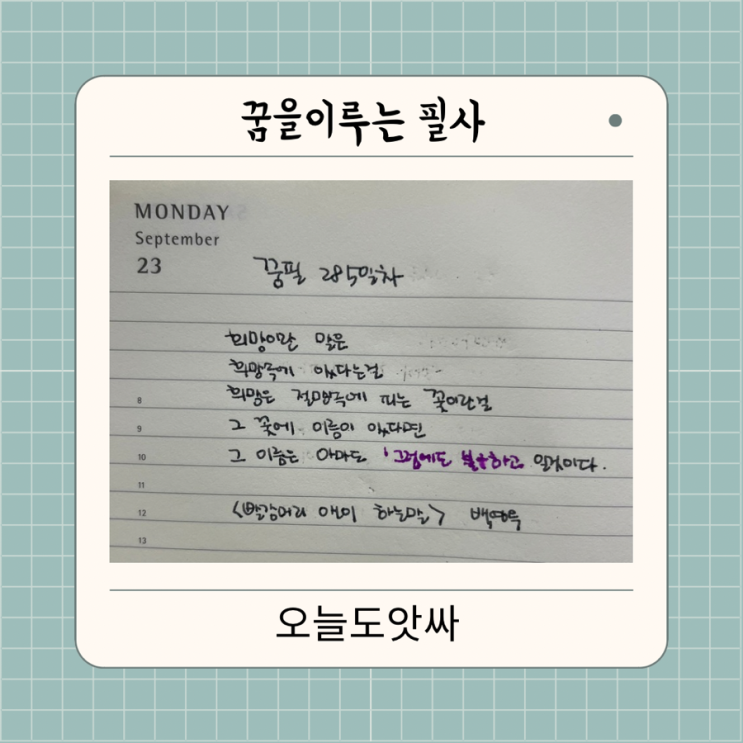 꿈을이루는 필사
MONDAY
September
23
꿈필 285일차
희망이란 말은
희망속에 있다는걸
8 희망은 절망속에 피는 꽃이란걸
9 그 꽃에 이름이 있다면
10 그 이름은 아마도 '그럼에도 불구하고 일것이다.
11
12 <빨강머리 앤이 하는말> 백영옥
13
오늘도앗싸